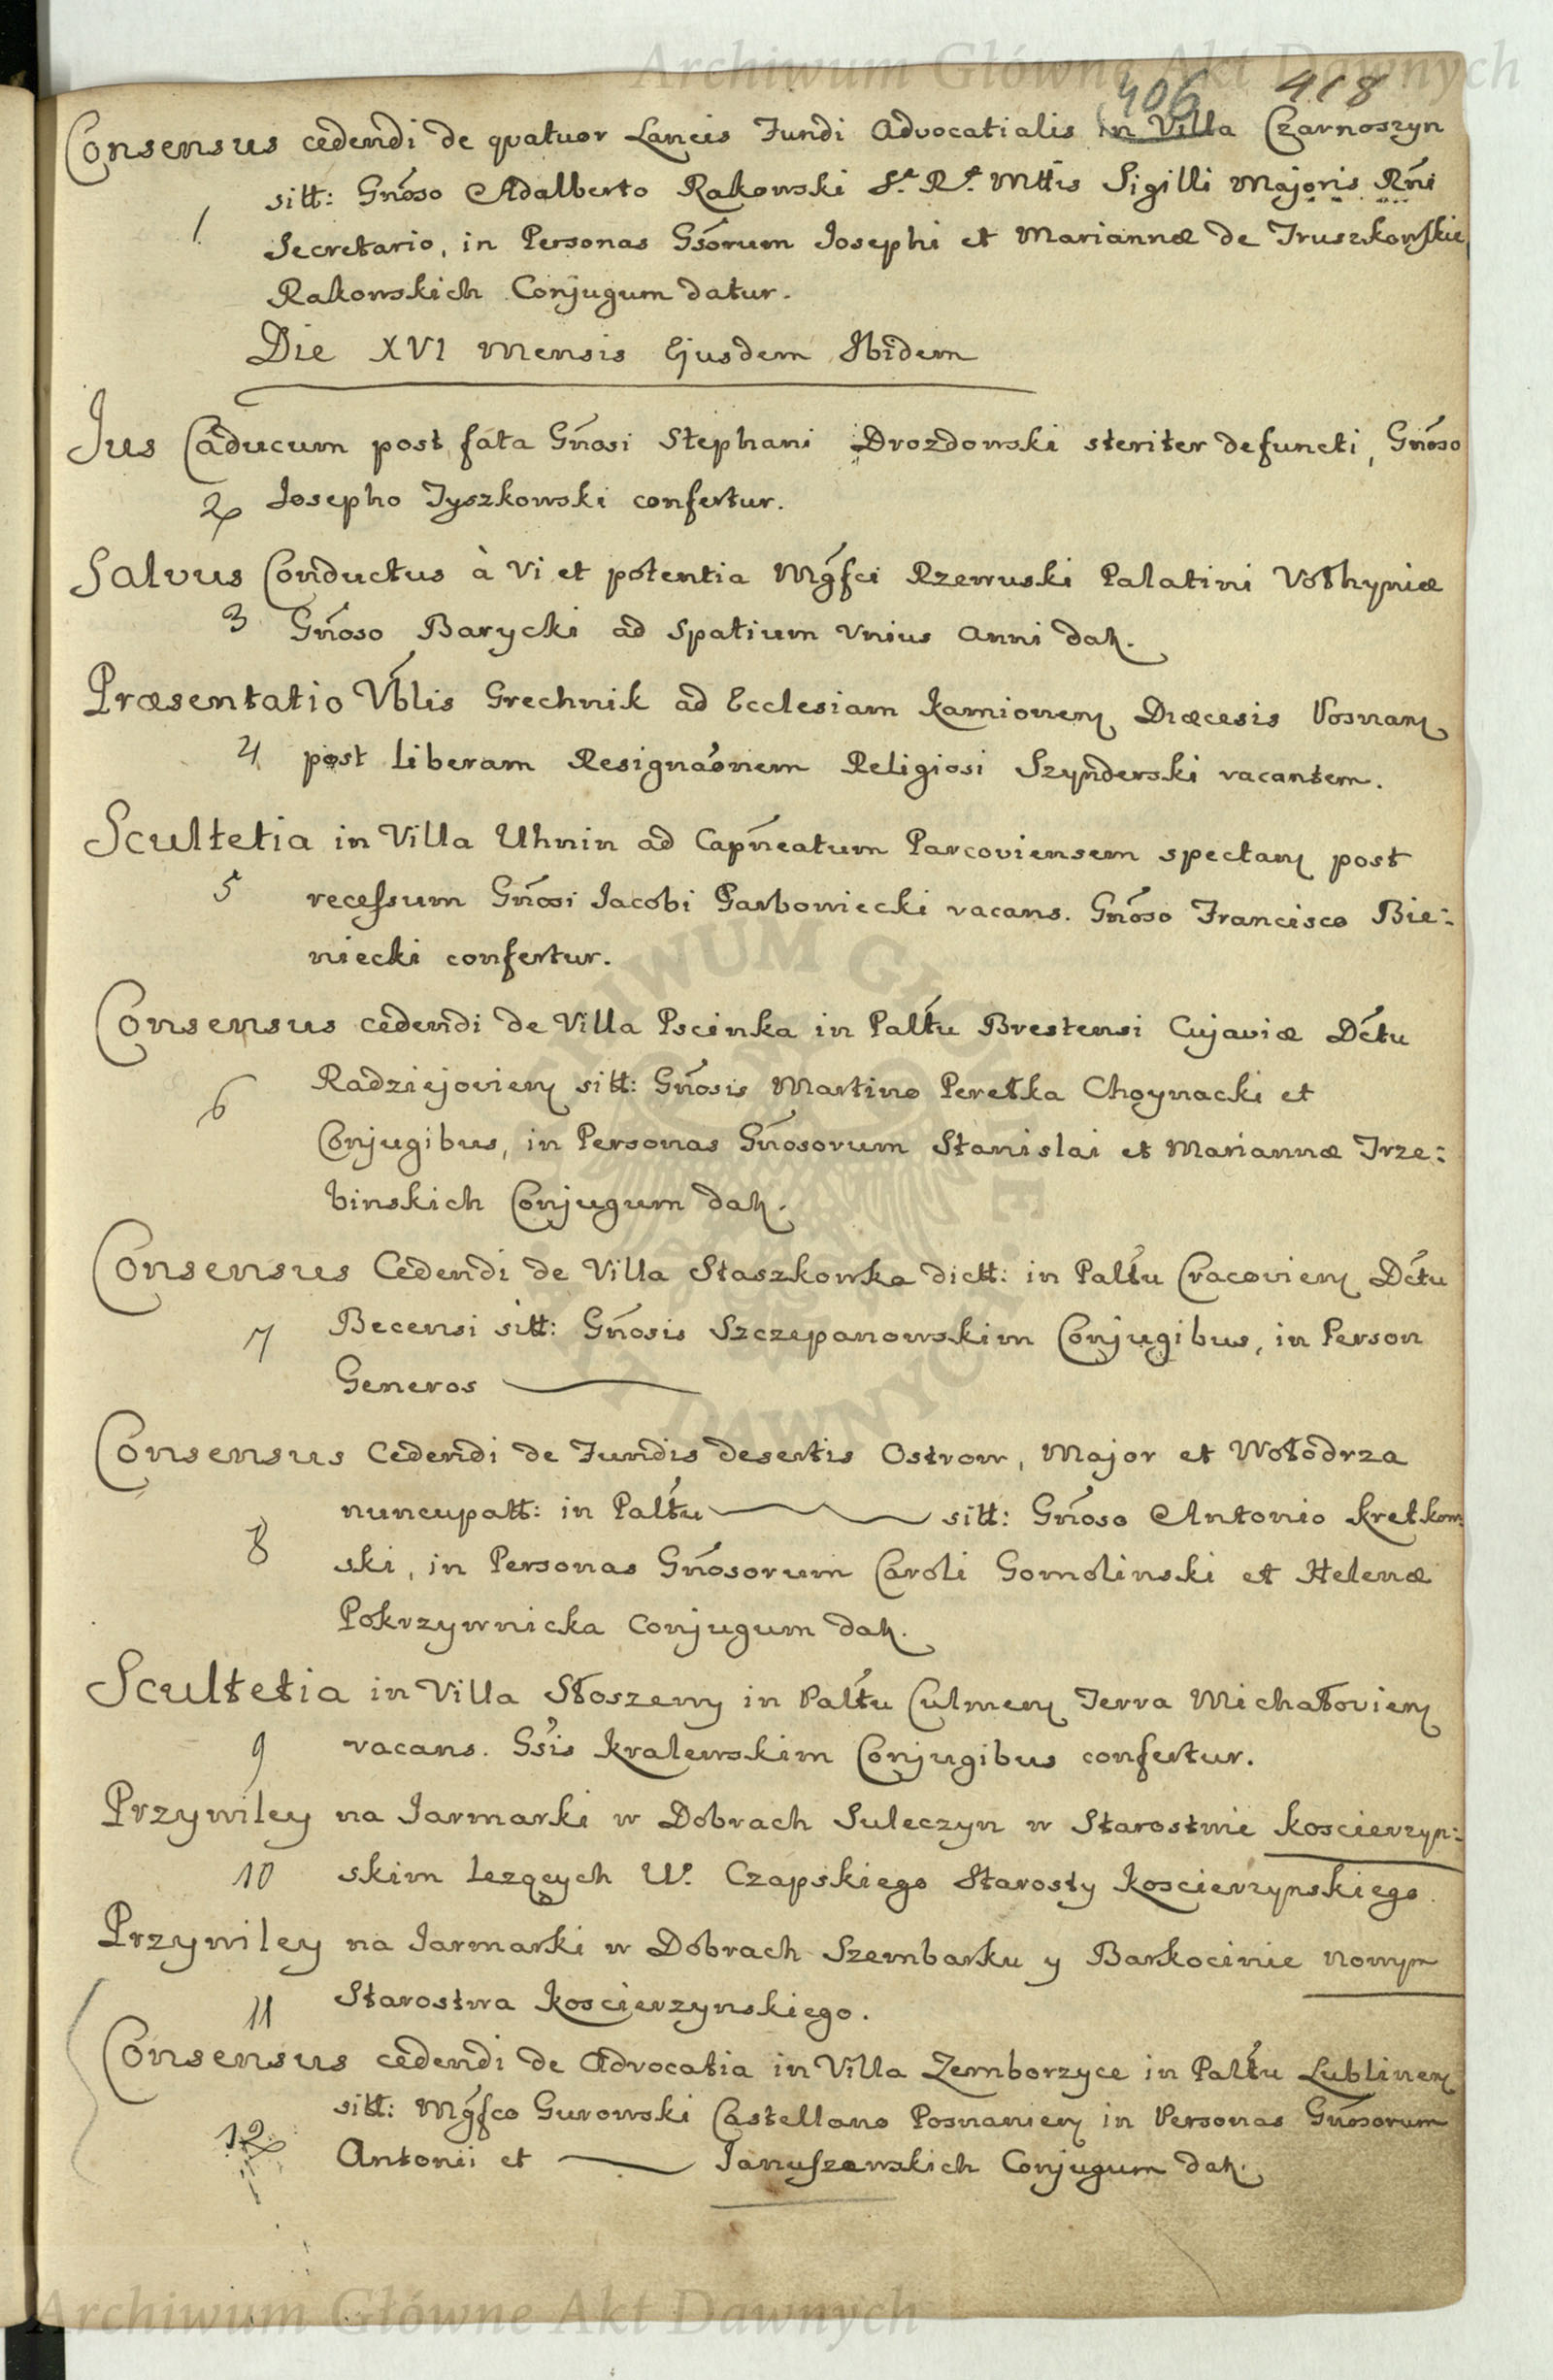 Archiwum Główne Akt Dawnych
406 418
Consensus cedendi de quatuor Laneis Fundi Advocatialis in Villa Czarnoszyn
1. sitt: Gnoso Adalberto Rakowski S. R. Mttis Sigilli Majoris Rni
Secretario, in Personas Gsorum Josephi et Mariannæ de Truszkowskie
Rakowskich Conjugum datur.
Die XVI Mensis Ejusdem Ibidem
Jus Caducum post fata Gnosi Stephani Drozdowski steriter defuncti, Gnoso
2 Josepho Tyszkowski confertur.
Salvus Conductus à Vi et potentia Mgfci Rzewuski Palatini Vołhyniæ
3 Gnoso Barycki ad Spatium Vnius Anni dat.
Præsentatio Vblis Grechnik ad Ecclesiam Kamionen Diæcesis Posnan
4 post liberam Resignaönem Religiosi Szynderski vacantem.
Scultetia in Villa Uhnin ad Capneatum Parcoviensem spectan post
5 recessum Gnosi Jacobi Garbowiecki vacans. Gnoso Francisco Bie:
niecki confertur.
Consensus cedendi de Villa Pscinka in Palttu Brestensi Cujaviæ Dctu
6 Radziejovien sitt: Gnosis Martino Peretka Choynacki et
Conjugibus, in Personas Gnosorum Stanislai et Mariannæ Trze:
binskich Conjugum dat.
Consensus Cedendi de Villa Staszkowka dictt: in Palttu Cracovien Dctu
7 Becensi sitt: Gnosis Szczepanowskim Conjugibus, in Person
Generos
Consensus Cedendi de Fundis desertis Ostrow, Major et Wołodrza
nuncupatt: in Palttu sitt: Gnoso Antonio Kretkow:
8 ski, in Personas Gnosorum Caroli Gomolinski et Helenæ
Pokrzywnicka Conjugum dat.
Scultetia in Villa Słoszewy in Palttu Culmen Terra Michałovien
9 vacans. Gsis Kralewskim Conjugibus confertur.
Przywiley na Jarmarki w Dobrach Suleczyn w Starostwie Koscierzyn:
10 skim lezących W. Czapskiego Starosty Koscierzynskiego.
Przywiley na Jarmarki w Dobrach Szembarku y Barkocinie nowym
11 Starostwa Koscierzynskiego.
Consensus cedendi de Advocatia in Villa Zemborzyce in Palttu Lublinen
sitt: Mgfco Gurowski Castellano Posnanien in Personas Gnosorum
12 Antonii et Januszewskich Conjugum dat.
Archiwum Główne Akt Dawnych